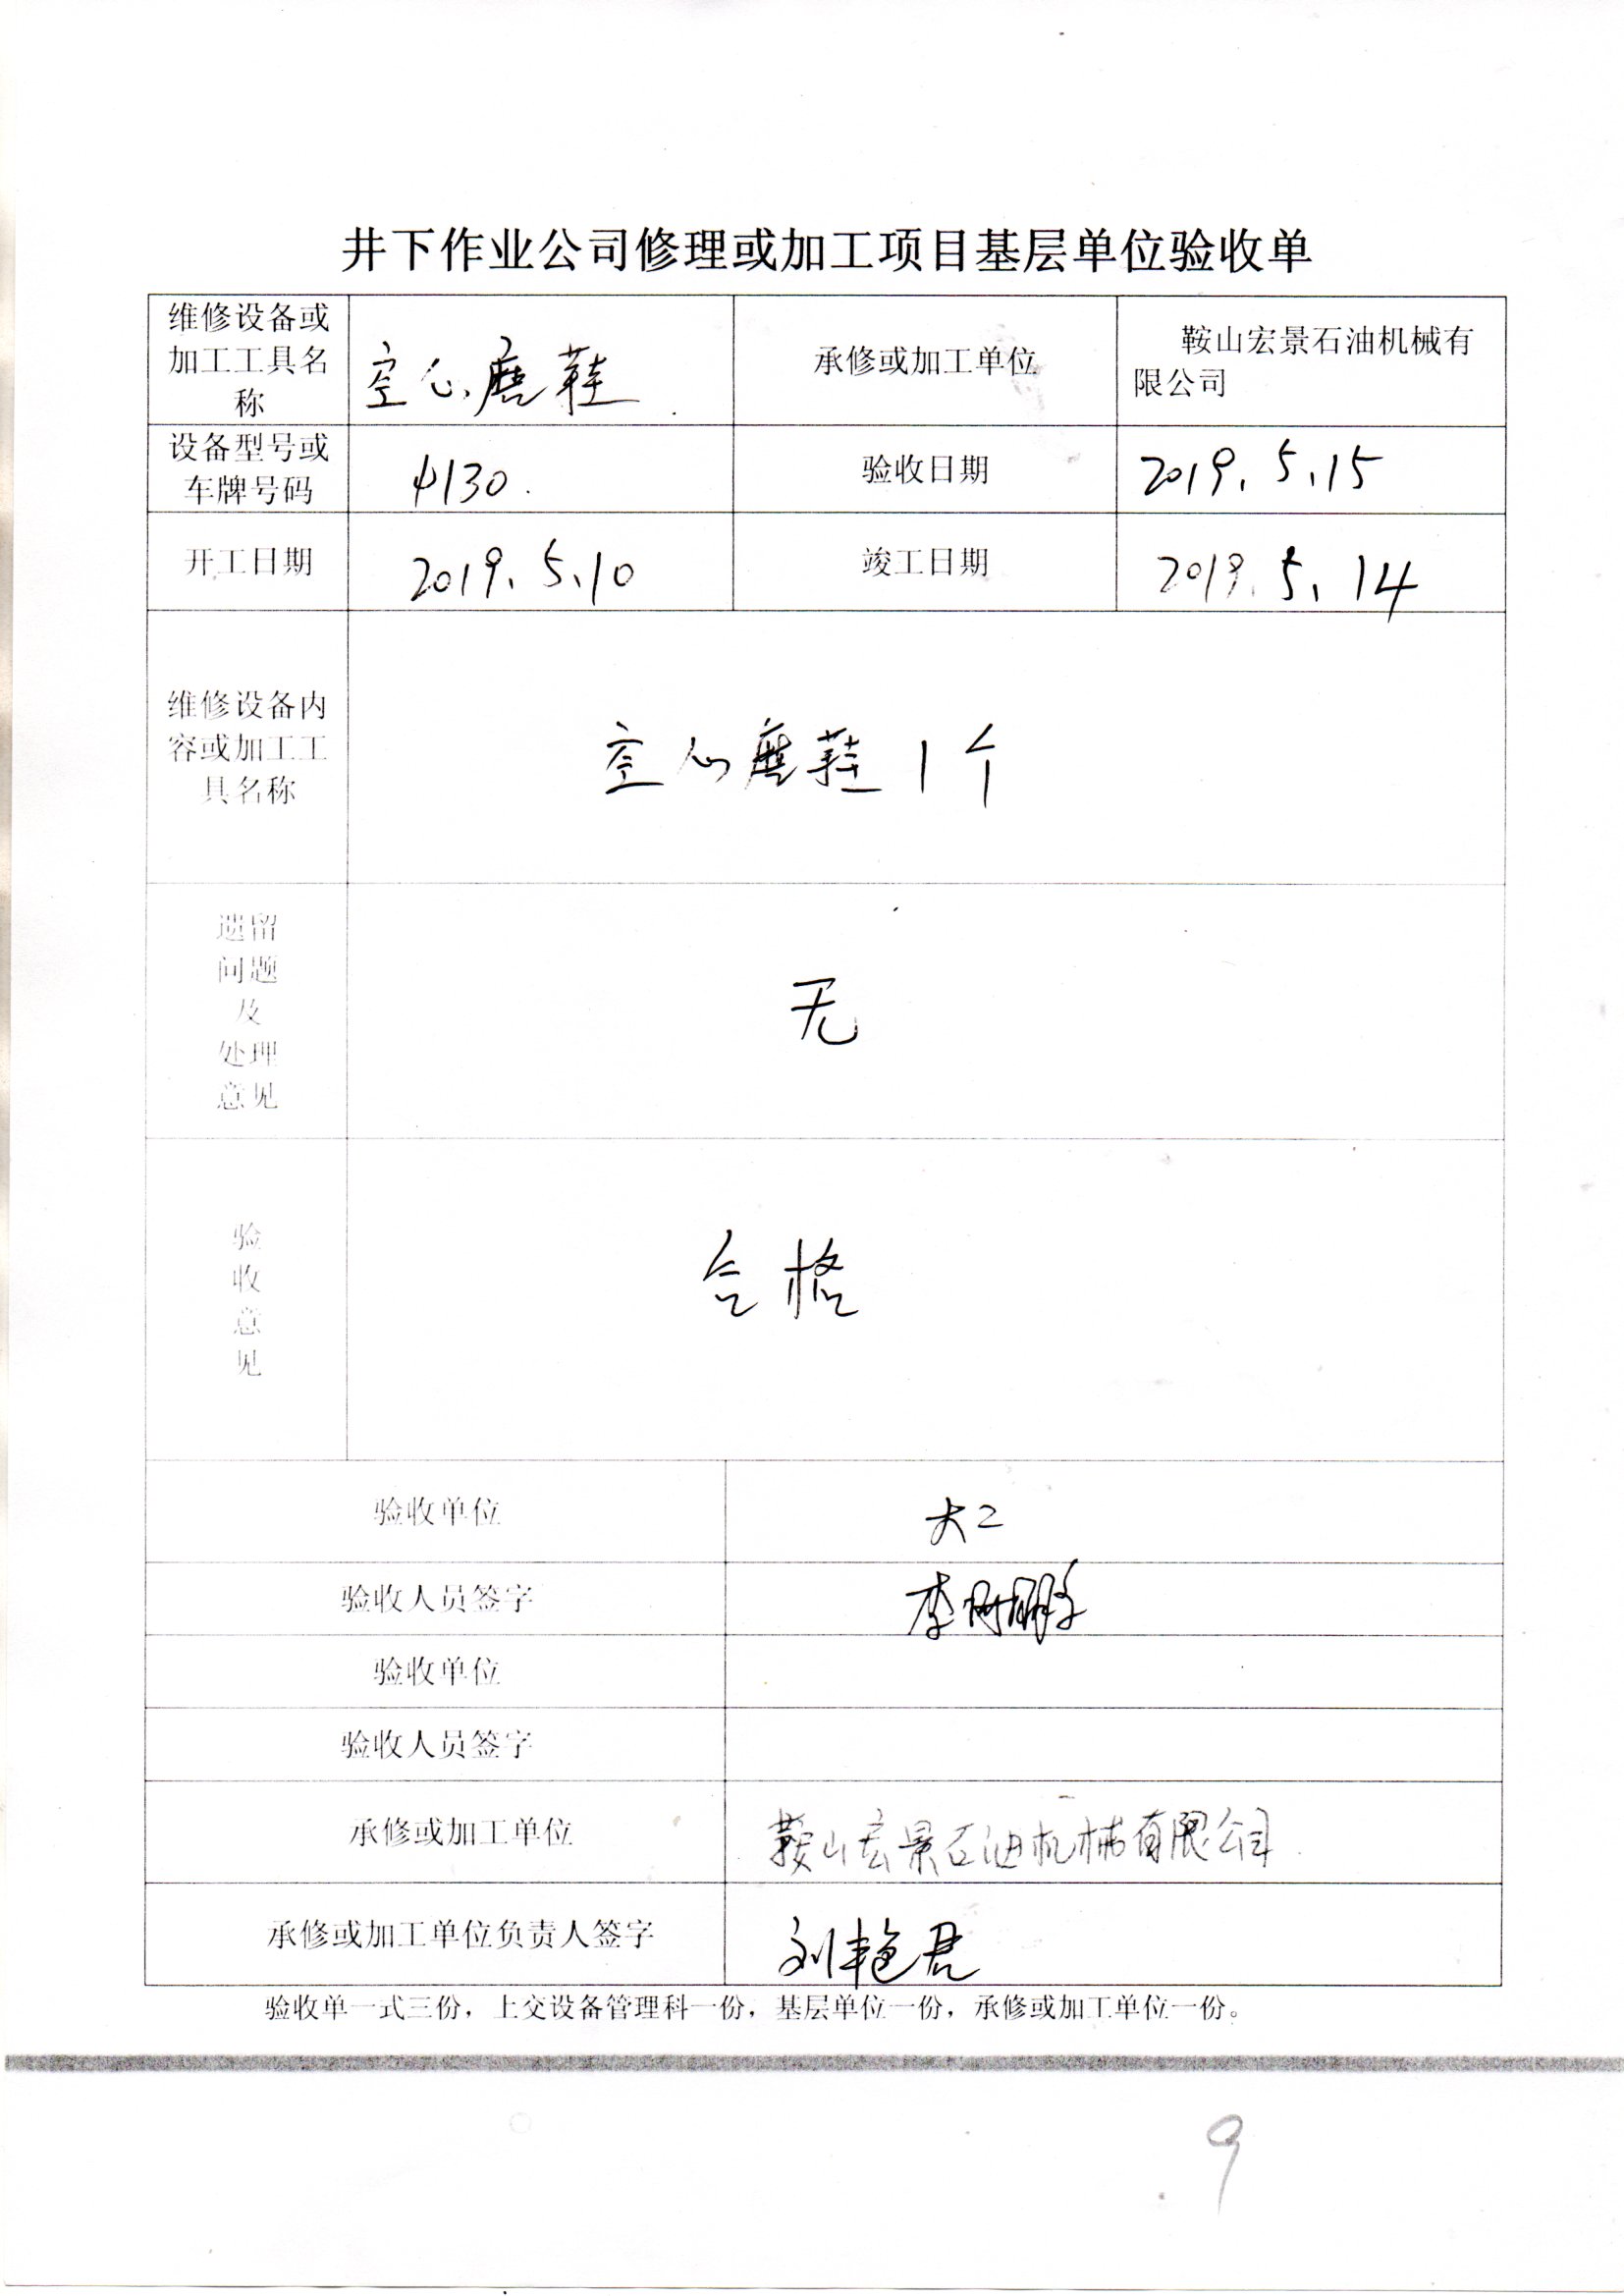 井下作业公司修理或加工项目基层单位验收单
维修设备或
加工工具名
称
空心磨鞋
承修或加工单位
鞍山宏景石油机械有
限公司
设备型号或
车牌号码
φ130
验收日期
2019.5.15
开工日期
2019.5.10
竣工日期
2019.5.14
维修设备内
容或加工工
具名称
空心磨鞋1个
遗留
问题
及
处理
意见
无
验
收
意
见
合格
验收单位
大二
验收人员签字
李树鹏
验收单位
验收人员签字
承修或加工单位
鞍山宏景石油机械有限公司
承修或加工单位负责人签字
刘艳君
验收单一式三份，上交设备管理科一份，基层单位一份，承修或加工单位一份。
9